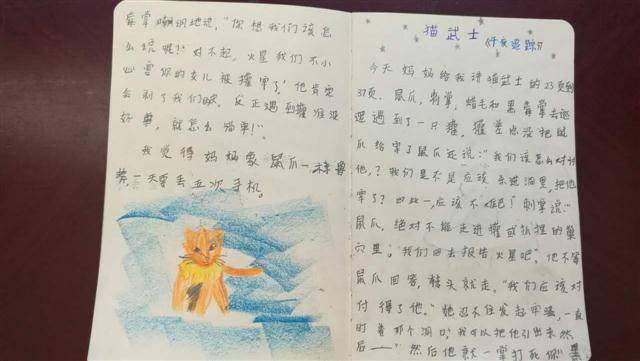 莓掌嘲讽地述，“你想我们该怎
么说呢？”对不起，火星我们不小
心害你的女儿被獾宰了，他肯定
会剥了我们的皮。反正遇到獾准没
好兽，就怎么简单！”
我觉得妈妈象鼠爪一样鲁
莽，一天要丢五次手机。
猫武士《午夜追踪》
今天妈妈给我讲猫武士的23页到
37页。鼠爪，刺掌，蜡毛和黑莓掌去巡
逻遇到了一只獾，獾差点没把鼠
爪给宰了鼠爪还说：“我们该怎么对付
他，？我们是不是应该杀进洞里，把他
宰了？四比一，应该不难吧！刺掌说：“
鼠爪，绝对不能走进獾或狐狸的巢
穴里，“我们回去报告火星吧”，他不等
鼠爪回答，转头就走，“我们应该对
付得了他。”她忍不住发起牢骚，一直
盯着那个洞口，我可以把他引出来然
后——”“然后他就一掌打死你”黑